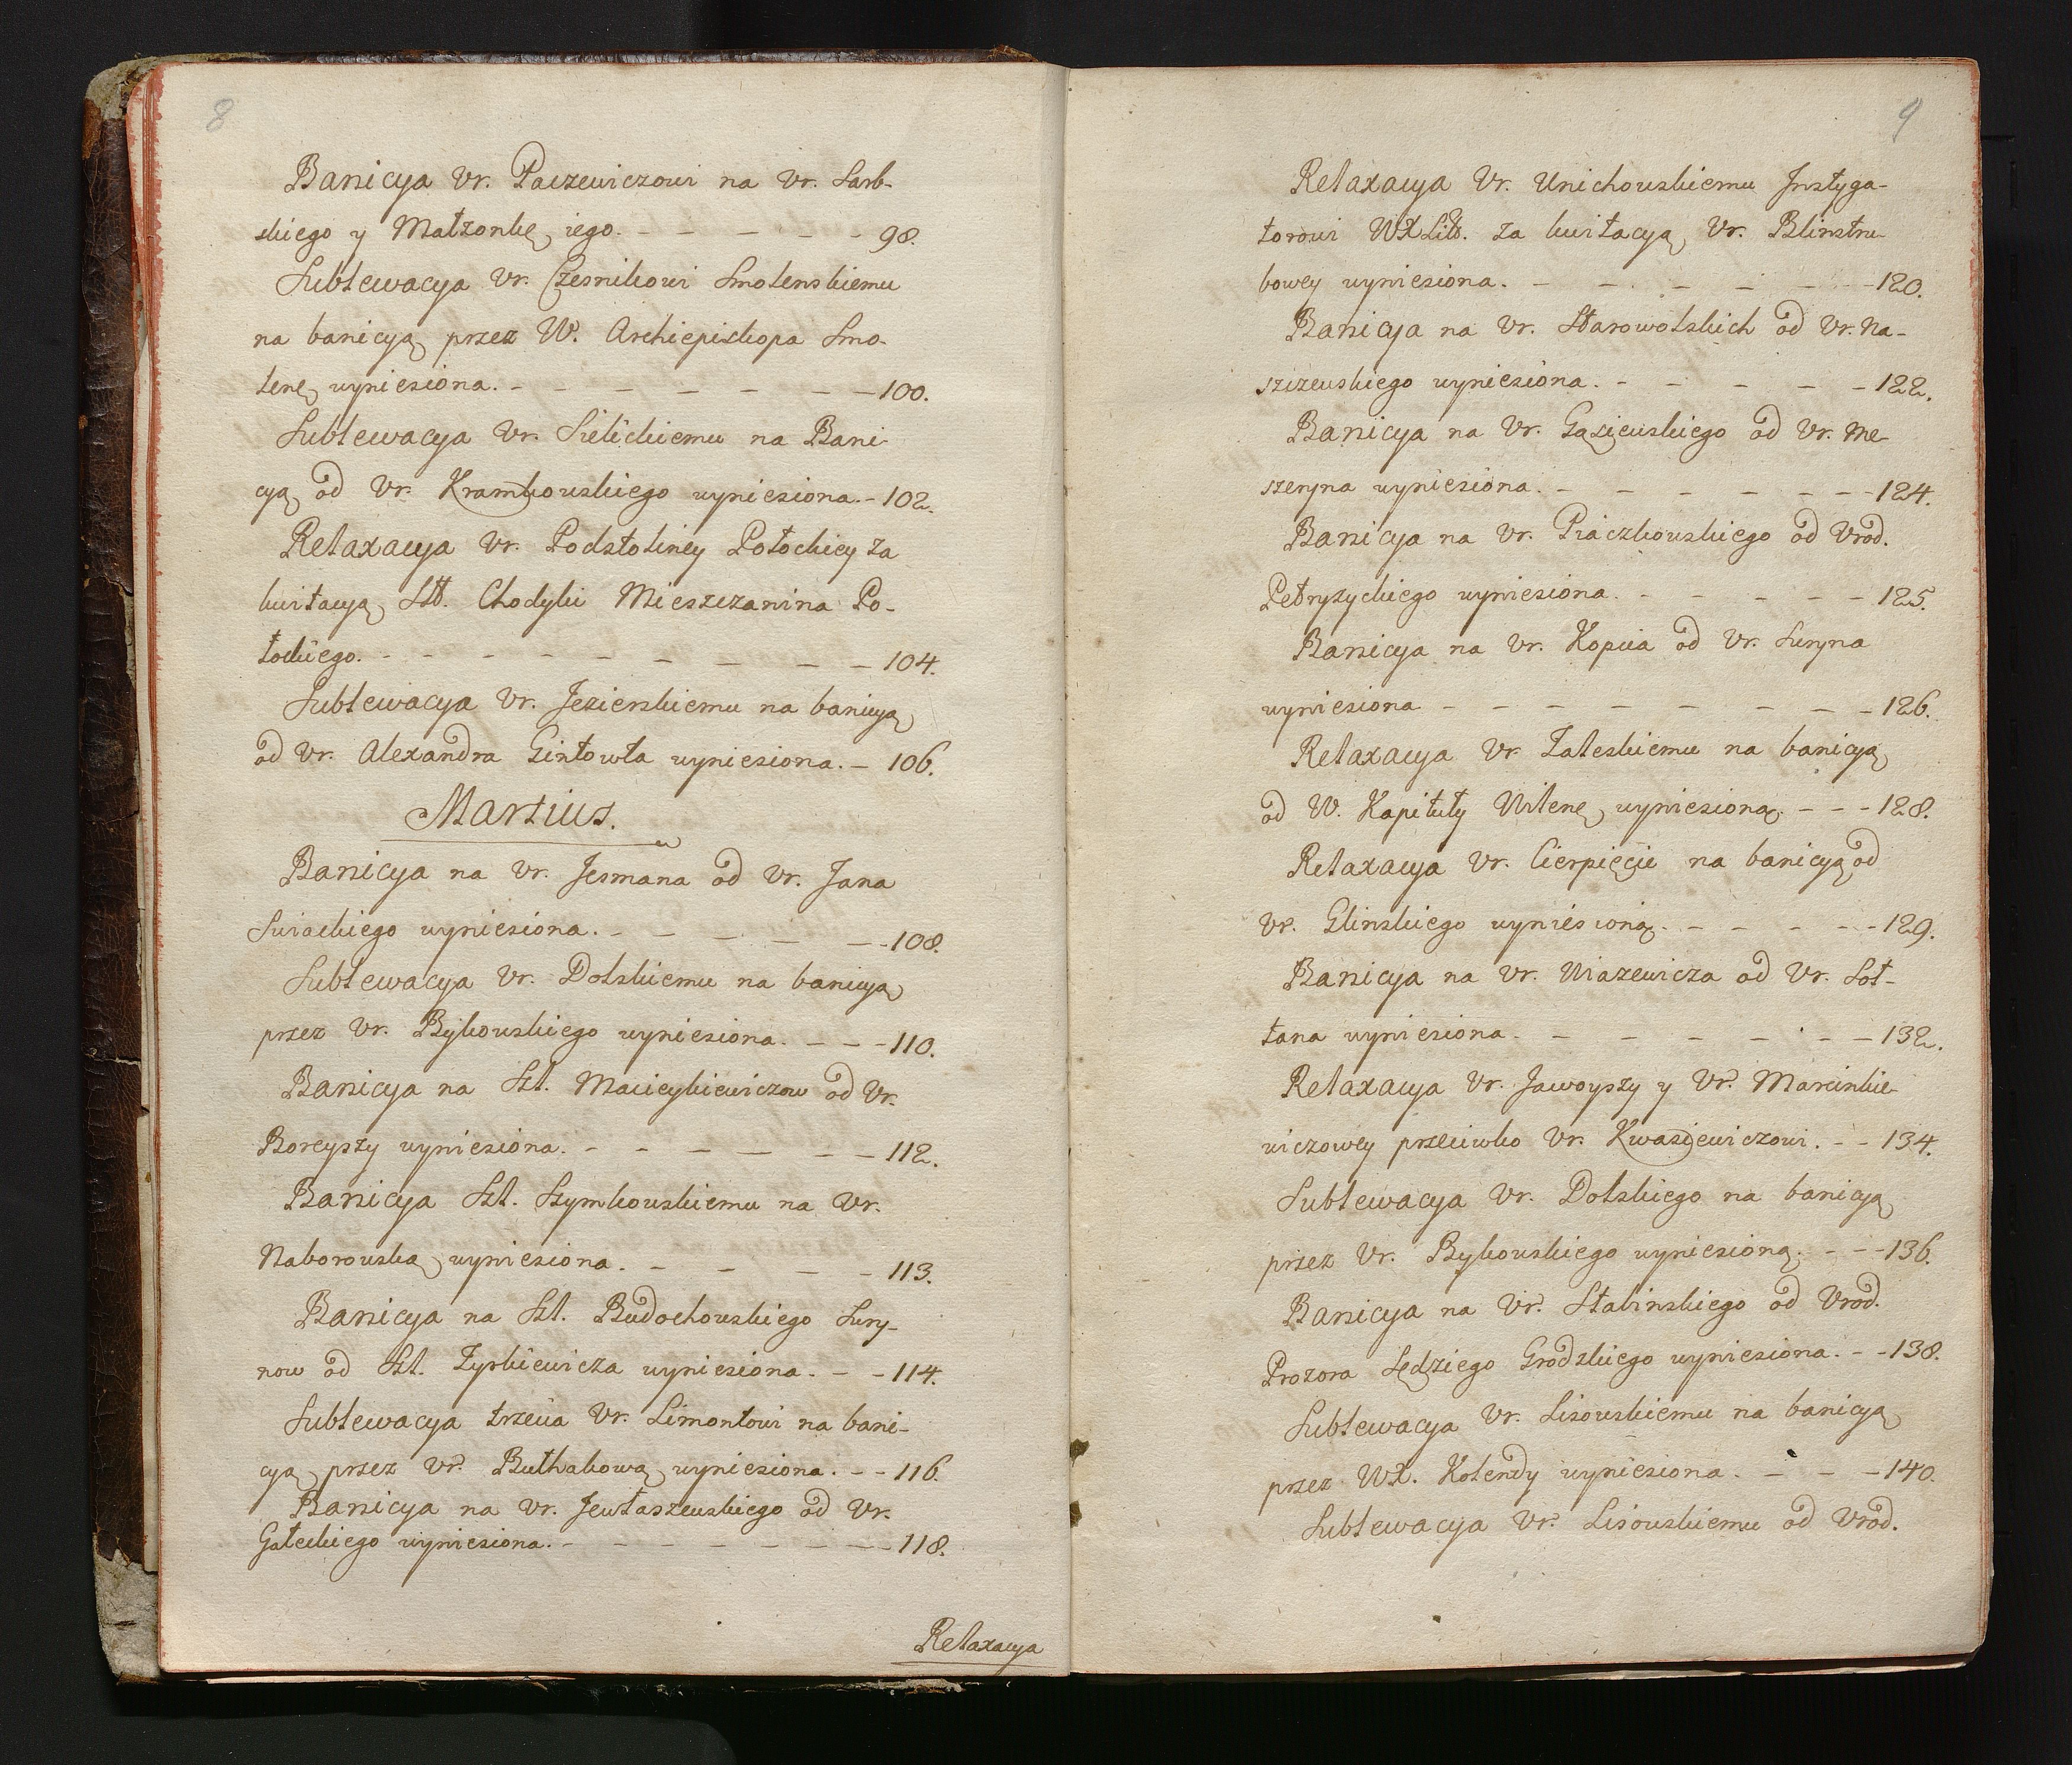 8
Banicya Ur. Paczewiczowi na Ur. Sarb-
skiego y Małżonkę iego. - - - - - 98.
Sublewacya Ur. Czesnikowi Smolenskiemu
na banicyą przez W. Archiepiskopa Smo-
lenę wyniesiona. - - - - - - 100.
Sublewacya Ur. Sielickiemu na Bani-
cyą od Ur. Kramkowskiego wyniesiona. - 102.
Relaxacya Ur. Podstoliney Połockiey za
kwitacyą Sld. Chodyki Mieszczanina Po-
łockiego. - - - - - - - - - 104.
Sublewacya Ur. Jezierskiemu na banicyą
od Ur. Alexandra Gintowta wyniesiona. - 106.
Martius.
Banicya na Ur. Jesmana od Ur. Jana
Swiackiego wyniesiona. - - - - - 108.
Sublewacya Ur. Dolskiemu na banicyą
przez Ur. Bykowskiego wyniesiona. - - - 110.
Banicya na Szl. Macieykiewiczow od Ur.
Boreyszy wyniesiona. - - - - - - 112.
Banicya Szl. Szymkowskiemu na Ur.
Naborowską wyniesiona. - - - - 113.
Banicya na Szl. Budochowskiego Sury-
now od Szl. Zyrkiewicza wyniesiona. - - 114.
Sublewacya trzecia Ur. Limontowi na bani-
cyą przez Ur. Buthakową wyniesiona. - - 116.
Banicya na Ur. Jewłaszewskiego od Ur.
Gałeckiego wyniesiona. - - - - - - - - 118.
Relaxacya
9
Relaxacya Ur. Unichowskiemu Instyga-
torowi WXLitt. za kwitacyą Ur. Blinstru-
bowey wyniesiona. - - - - - - - 120.
Banicya na Ur. Starowolskich od Ur. Na-
szczewskiego wyniesiona. - - - - - 122.
Banicya na Ur. Gąsiewskiego od Ur. Me-
szeryna wyniesiona. - - - - - - - 124.
Banicya na Ur. Piaczkowskiego od Urod.
Petryzyckiego wyniesiona. - - - - - 125.
Banicya na Ur. Kopcia od Ur. Suryna
wyniesiona - - - - - - - - 126.
Relaxacya Ur. Zaleskiemu na banicyą
od W. Kapituły Wilenę wyniesioną. - - - 128.
Relaxacya Ur. Cierpięcie na banicyą od
Ur. Glinskiego wyniesioną. - - - - - 129.
Banicya na Ur. Wiazewicza od Ur. Soł-
tana wyniesiona. - - - - - - - 132.
Relaxacya Ur. Jawoyszy y Ur. Marcinkie-
wiczowey przeciwko Ur. Kwasiewiczowi. - - 134.
Sublewacya Ur. Dolskiego na banicyą
przez Ur. Bykowskiego wyniesioną. - - - 136.
Banicya na Ur. Stabinskiego od Urod.
Prozora Sędziego Grodzkiego wyniesiona. - - 138.
Sublewacya Ur. Lisowskiemu na banicyą
przez WX. Kolendy wyniesiona. - - - 140.
Sublewacya Ur. Lisowskiemu od Urod.